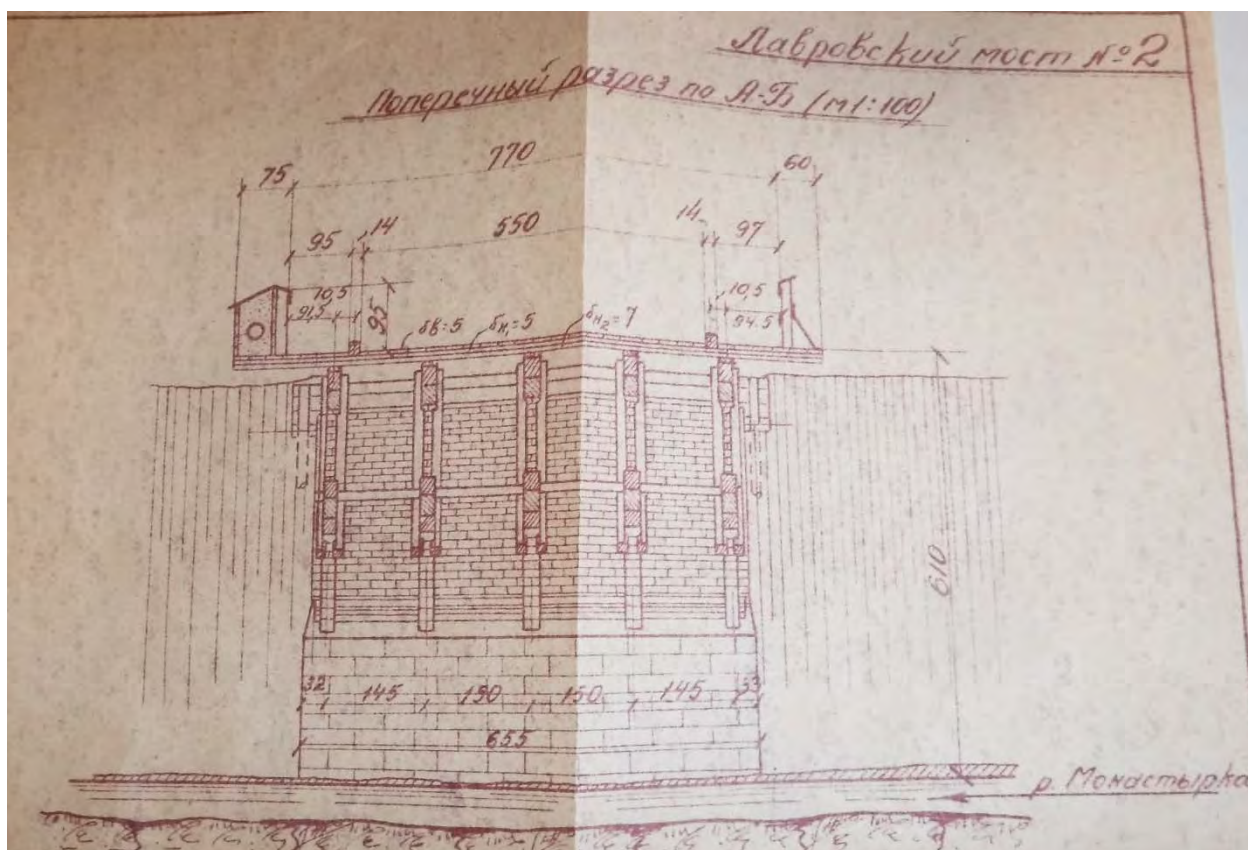 Лавровский мост №2
Поперечный разрез по А-Б (м 1:100)
770
75
60
14
550
14
97
95
10,5
91,5
95
δв=5
δн₁=5
δн₂=7
10,5
94.5
610
32
145
150
150
145
33
655
р. Монастырка